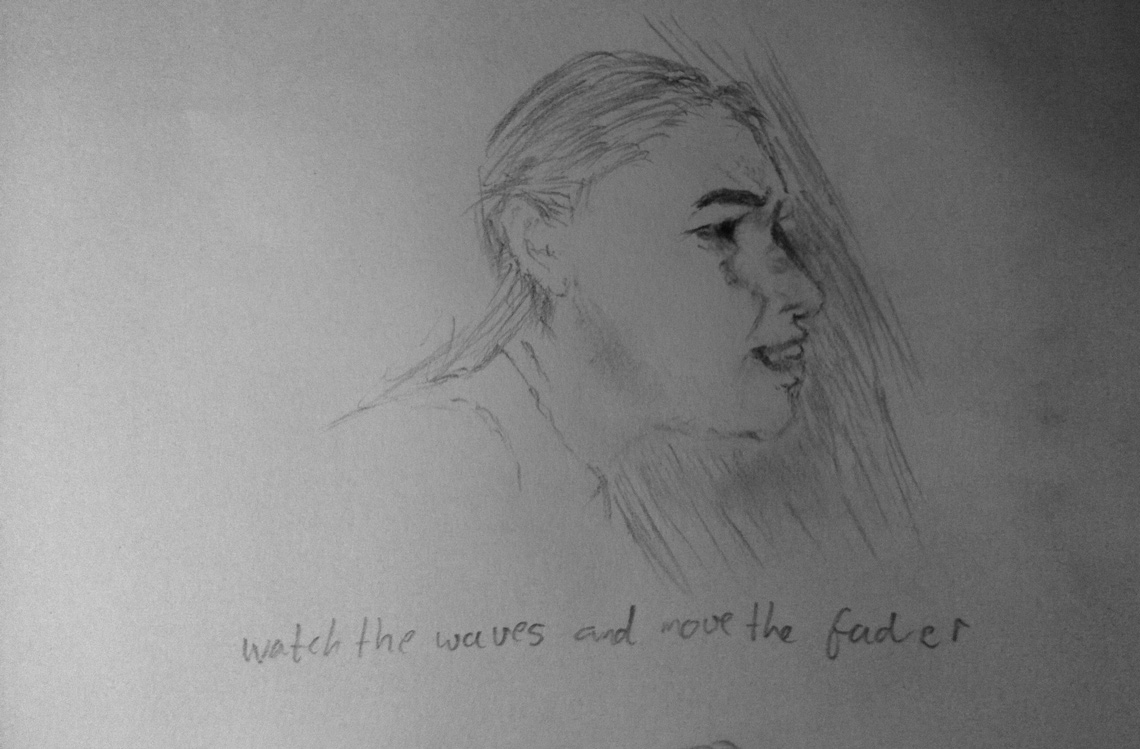 watch the waves and move the fader